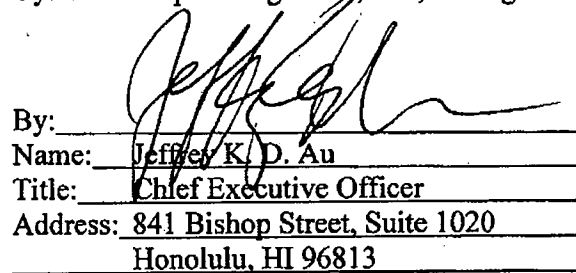 By:
Name: Jeffrey K. D. Au
Title: Chief Executive Officer
Address: 841 Bishop Street, Suite 1020
Honolulu, HI 96813